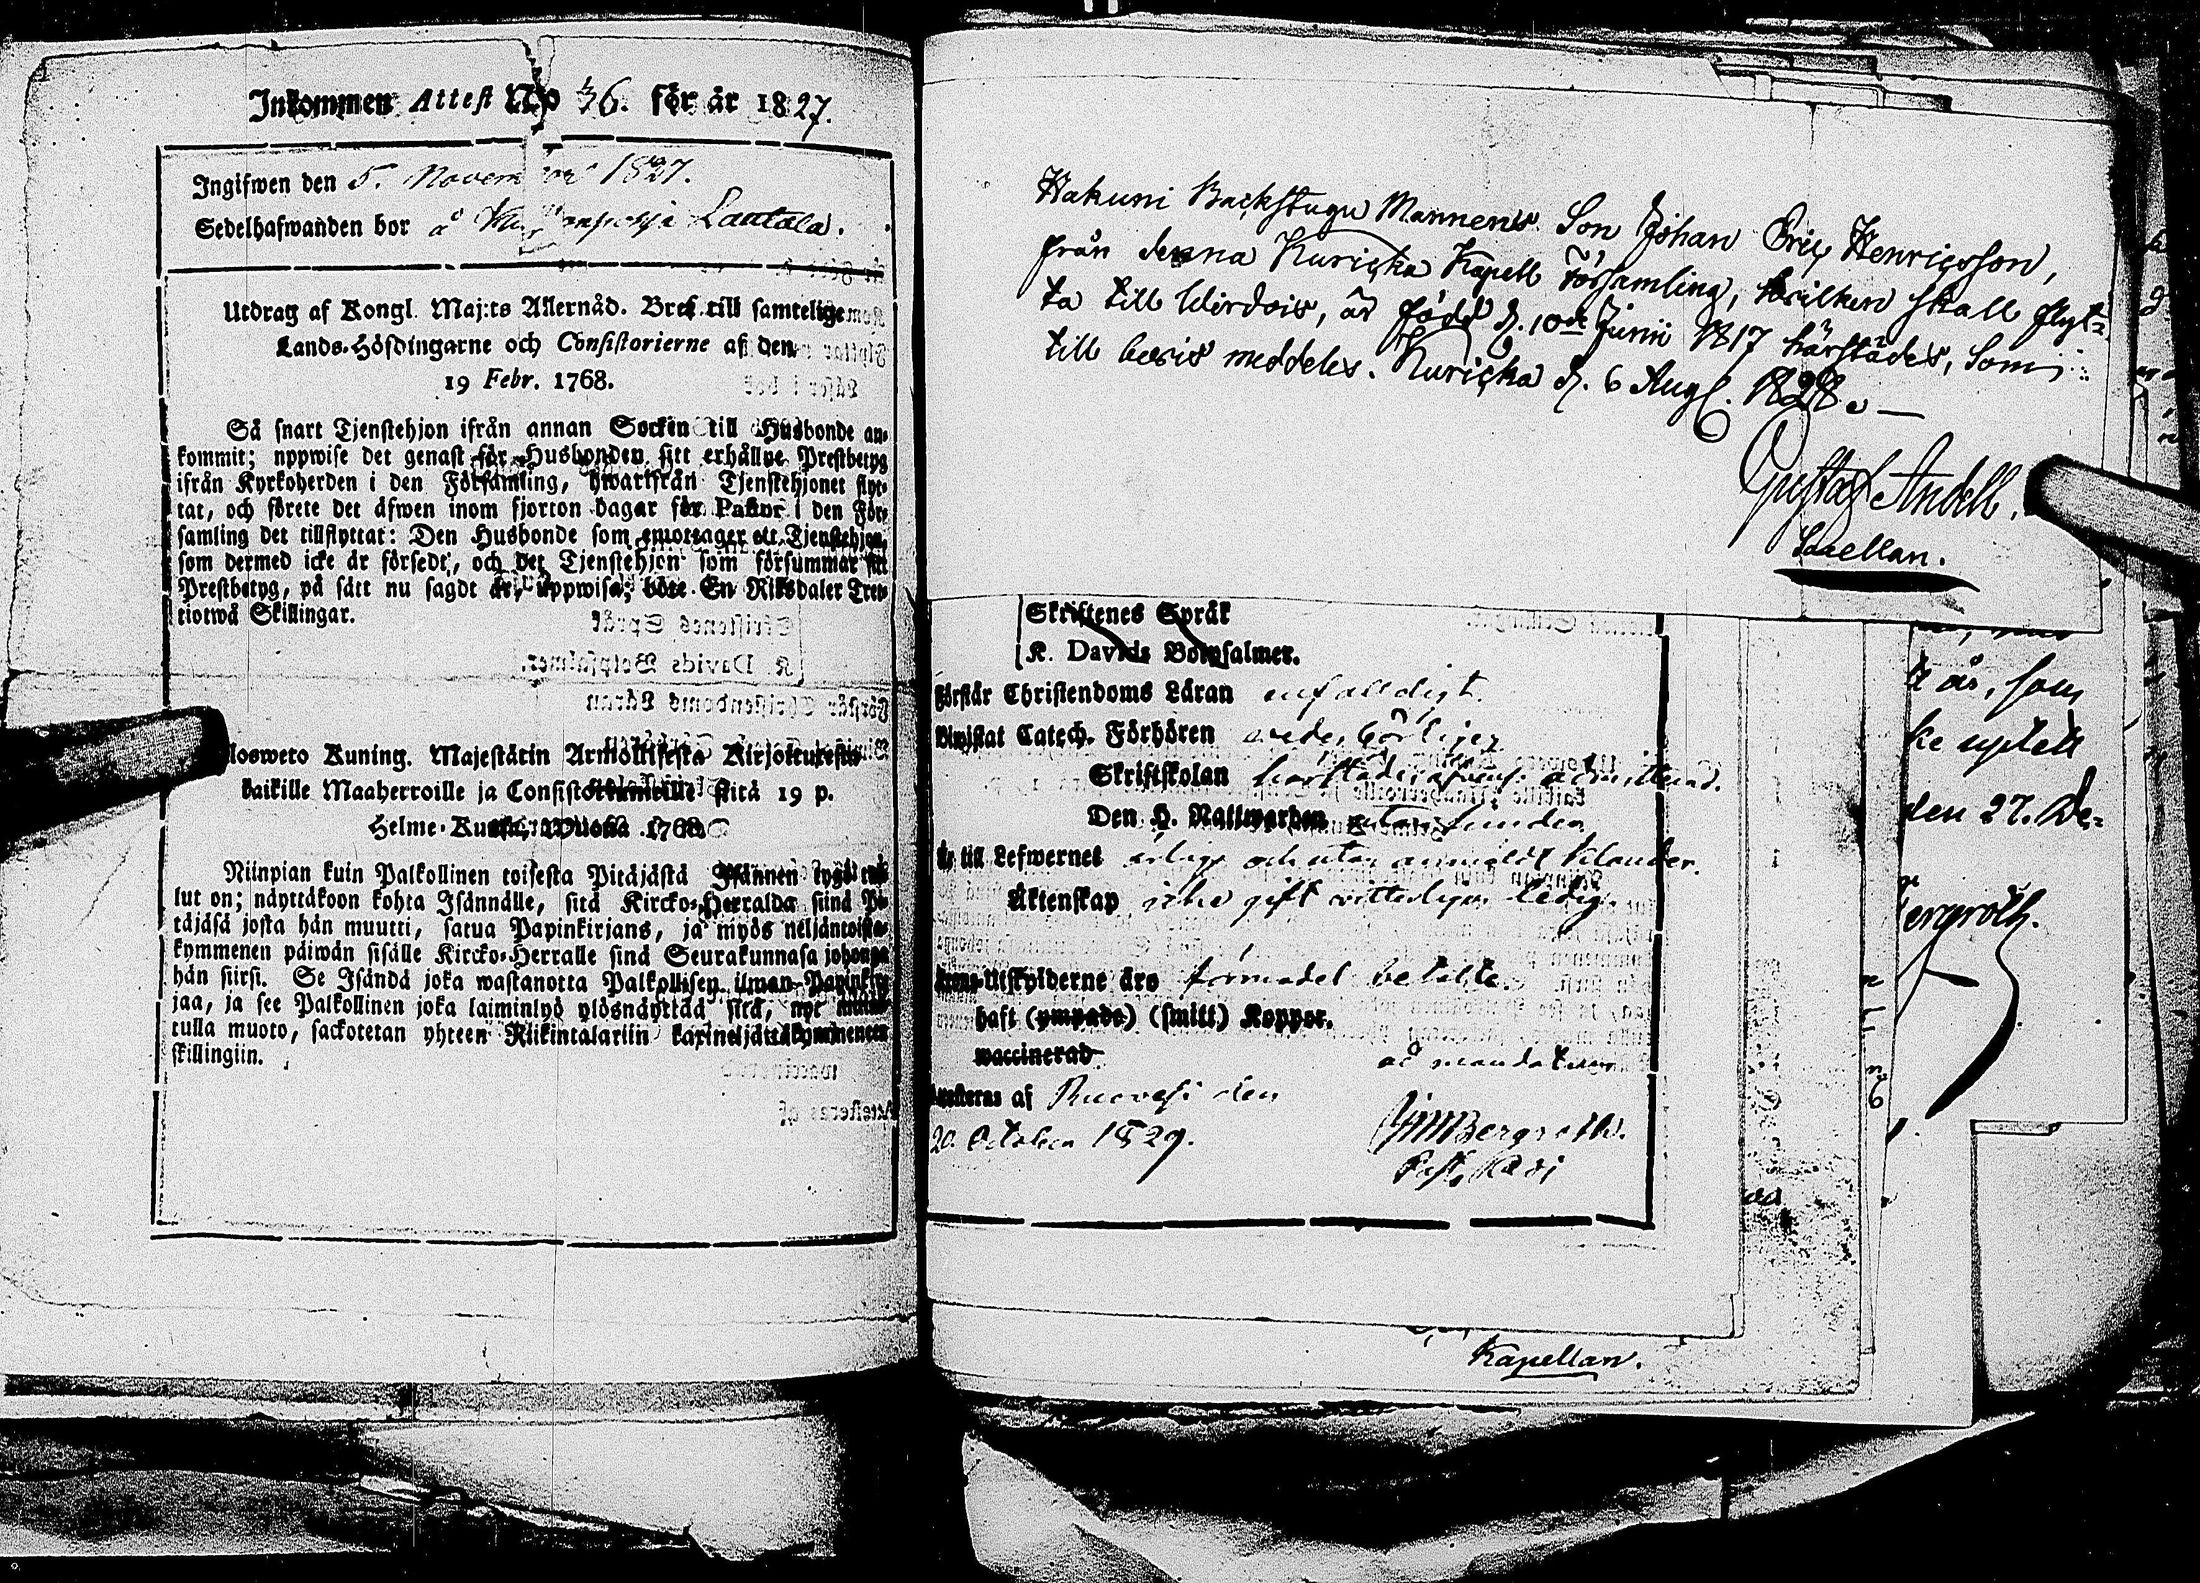 Inkommen Attest No 36. för år 1827.
Ingifwen den 5. November 1827.
Sedelhafwanden bor å Lautala.
Utdrag af Kongl. Maj:ts Allernåd. Bref till samtelige
Lands-Höfdingarne och Consistorierne af den
19 Febr. 1768.
Så snart Tjenstehjon ifrån annan Socken till Husbonde an-
kommit; uppwise det genast för Husbonden sitt erhållne Prestbetyg
ifrån Kyrkoherden i den Församling, hwarifrån Tjenstehjonet flyt-
tat, och förete det äfwen inom fjorton dagar för Pastor i den För-
samling det tillflyttat: Den Husbonde som emottager ett Tjenstehjon,
som dermed icke är försedt, och det Tjenstehjon som försummar sitt
Prestbetyg, på sätt nu sagdt är, uppwisa; böte En Riksdaler Tret-
tiotwå Skillingar.
Ulosweto Kuning. Majestätin Armollisesta Kirjoituxesta
kaikille Maaherroille ja Consistoriumeille siitä 19 p.
Helme-Kuusa, Wuonna 1768.
Niinpian kuin Palkollinen toisesta Pitäjästä Isännen tygö tul-
lut on; näyttäkoon kohta Isännälle, sitä Kircko-Herralda siinä Pi-
täjäsä josta hän muutti, saatua Papinkirjans, ja myös neljäntoista-
kymmenen päiwän sisälle Kircko-Herralle siinä Seurakunnasa johonga
hän siirsi. Se Isändä joka wastanotta Palkollisen ilman Papinkir-
jaa, ja see Palkollinen joka laiminlyö ylösnäyttää sitä, nyt
tulla muoto, sackotetan yhteen Riikintalariin kaxineljättäkymmeneen
skillingiin.
Hakuni Backstugu Mannens Son Johan Eric Henricsson,
från denna Kuricka Kapell Församling, hvilken skall flyt-
ta till Wirdois, är född d. 10de Junii 1817 härstädes, som
till bevis meddeles. Kuricka d. 6 Aug. 1828.
Gustaf Andell.
Sacellan.
Skriftenes Språk
K. Davids Botpsalmer.
Förstår Christendoms Läran enfalldigt
Biwistat Catech. Förhören vederbörligen
Skriftskolan härstädes admitterad.
Den H. Nattwarden
Är till Lefwernet ärlig och utan anmäldt klander.
Äktenskap icke gift vitterligen ledig.
Utskylderne äro förmodel. betalte.
haft (ympade) (smitt) Koppor.
waccinerad
ad mandatum
Attesteras af Ruovesi den
20. October 1829. Bergroth.
Kapellan.
är, som
den 27. De-
Bergroth.